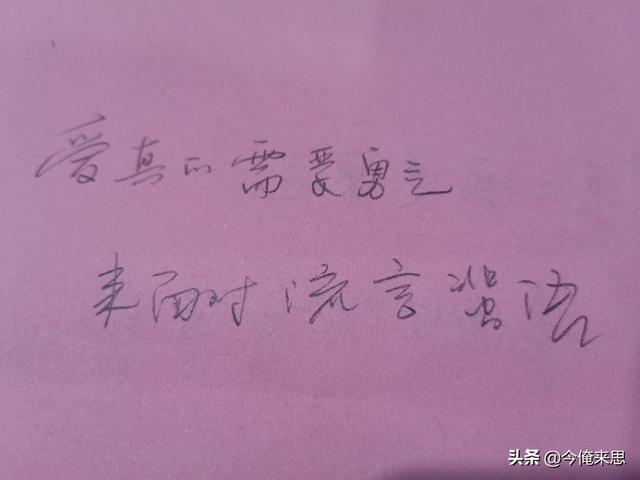 爱真的需要勇气
来面对流言蜚语
头条 @今俺来思